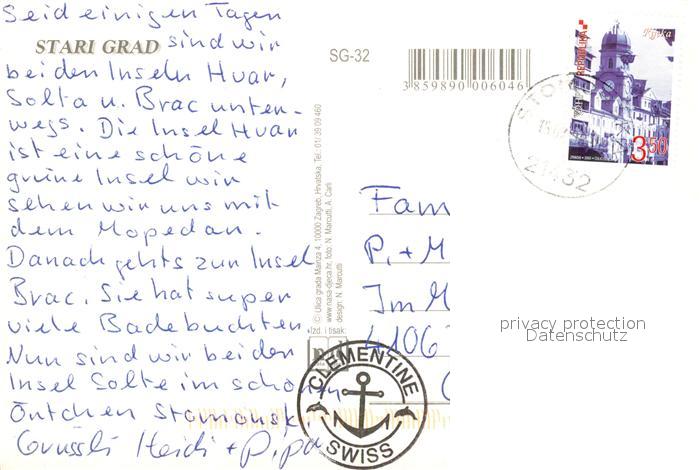 Seid einigen Tagen
STARI GRAD sind wir
bei den Inseln Hvar,
Solta u. Brac unter-
wegs. Die Insel Hvar
ist eine schöne
grüne Insel wir
sehen wir uns mit
dem Mopedan.
Danach gehts zur Insel
Brac. Sie hat super
viele Badebuchten.
Nun sind wir bei den
Insel Solte im schönen
Örtchen Stomorska.
Grüssli Heidi + P.pa
SG-32
3859890006046
© Ulica grada Mainza 4, 10000 Zagreb, Hrvatska, Tel.: 01/ 39 09 460
www.nasa-djeca.hr, foto: N. Marcutti, A. Carli
design: N. Marcutti
Izd. i tisak:
REPUBLIKA
Rijeka
3.50
21432
Fam
P. + M
Im M
4106
privacy protection
Datenschutz
CLEMENTINE
N 1
SWISS